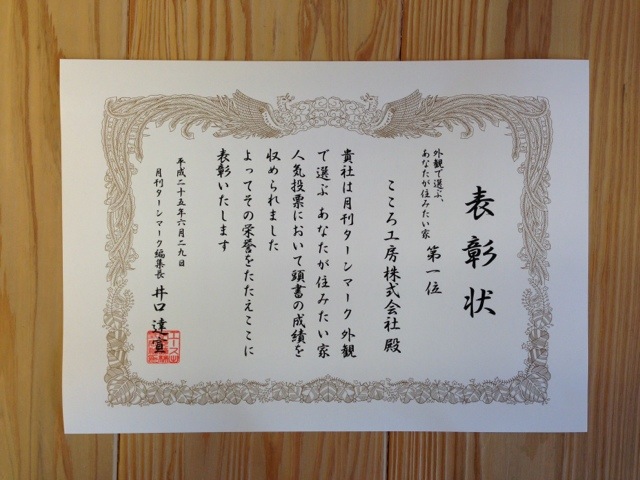 表彰状
外観で選ぶ、
あなたが住みたい家
第一位
こころ工房株式会社 殿
貴社は月刊ターンマーク 外観
で選ぶ あなたが住みたい家
人気投票において頭書の成績を
収められました
よってその栄誉をたたえここに
表彰いたします
平成二十五年六月二九日
月刊ターンマーク編集長 井口 達宣